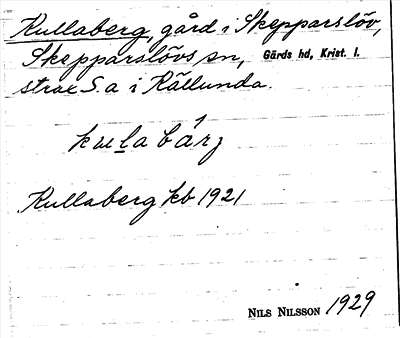 Kullaberg, gård i Skepparslöv,
Skepparslövs sn, Gärds hd, Krist. l.
strax S.a i Källunda.
kulabárʒ
Kullaberg kb 1921
NILS NILSSON 1929